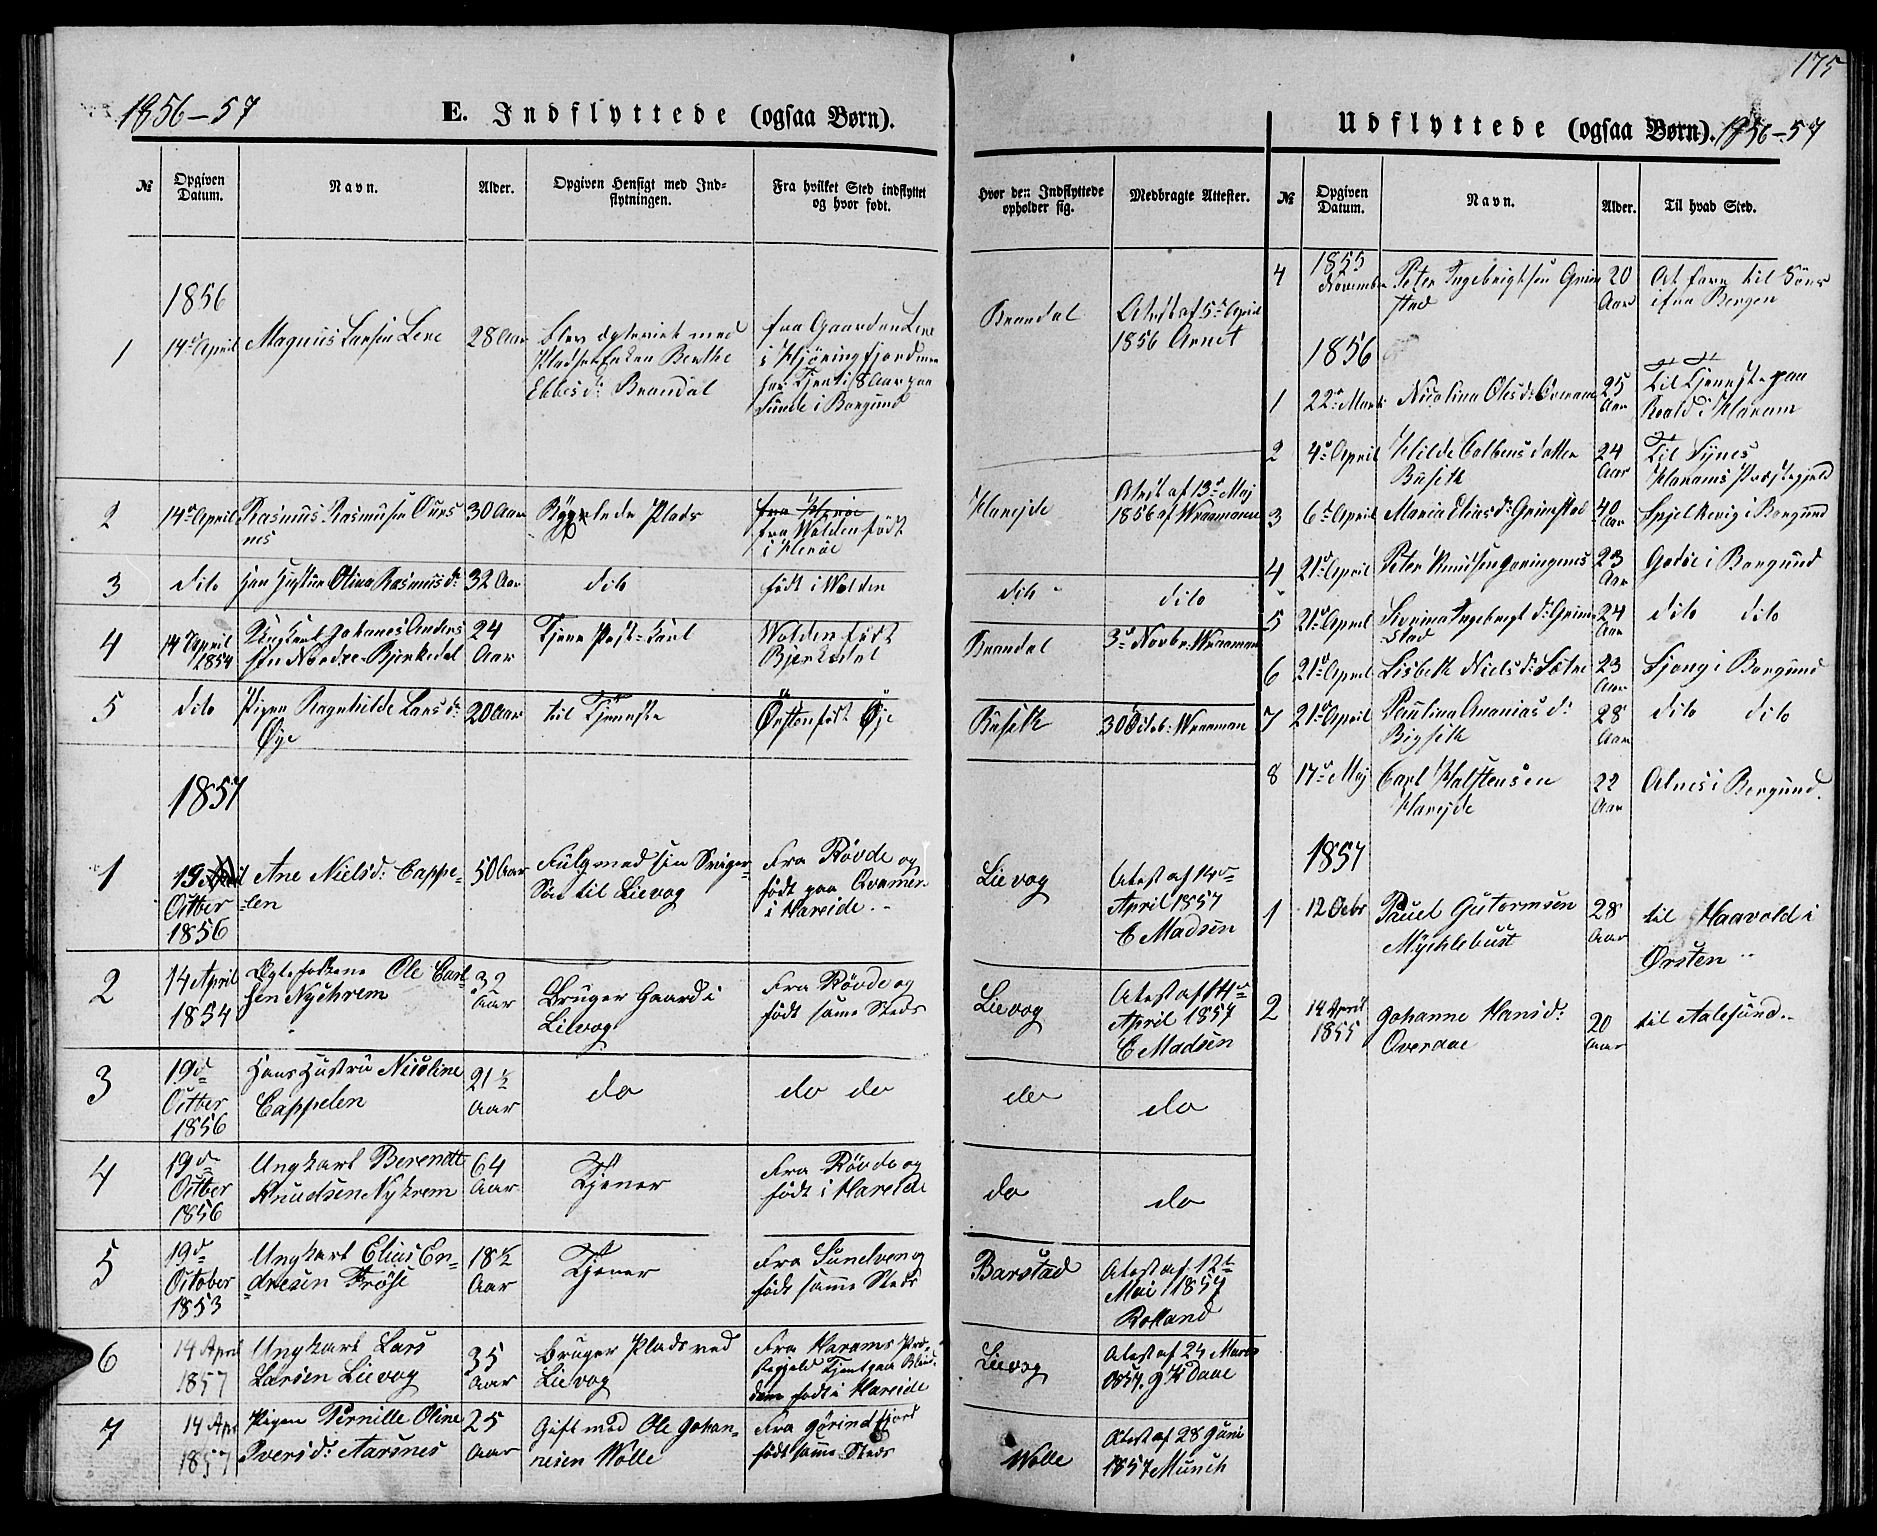 175
1856-57
E. Indflyttede (ogsaa Børn).
Udflyttede (ogsaa Børn). 1856-57
№ Opgiven Datum. Navn. Alder. Opgiven Hensigt med Indflytningen. Fra hvilket Sted indflyttet og hvor født.
Hvor den Indflyttede opholder sig. Medbragte Attester.
1856
1 14de April Magnus Larsen Lene 28 Aar
Blev egteviet med
Pladsenken Berthe
Ebbesd: Brandal
fra Gaarden Lene
i Hjöringfjord men
har tjent i 8 Aar paa
Sunde i Borgund
Brandal
Atest af 5te April
1856 Arnet
2 14de April Rasmus Rasmusen
nes
30 Aar
Plads
fra Herøe
fra Wolden født
i Herøe
Hareide
Atest af 13de Maj
1856 af Wraamann
3 dito Hans Hustru Olina Rasmusd: 32 Aar dito født i Wolden
dito dito
4 14 April
1854
Ungkarl Johanes Anders
sen Nordre-Bjerkedal
24
Aar
Tjene
Wolden født
Bjerkedal
Brandal 3de Novbr: Wraaman
5 dito Pigen Ragnhilde Larsd:
Øye
20 Aar til Tjeneste Ørsten født Øje
Buseth 30 Octob: Wraaman
1857
1 19
Octber
1856
Ane Nielsd: Cappe-
len
50 Aar
Fulg med sin Sviger-
Søn til Lievog
Fra Rövde og
født paa
i Hareide
Lievog
Atest af 14de
April 1857
C Madsen
2 14 April
1854
Egtefolkene Ole Carl-
sen Nychrem
32
Aar
Bruger Gaard i
Lievog
Fra Rövde og
født same Steds
Lievog
Atest af 14de
April 1857
C Madsen
3 19de
Octber
1856
Hans Hustru Nicoline
Cappelen
21 ½
Aar
do do do
do do
4 19de
Octber
1856
Ungkarl Berendt
Knudsen Nykrem
64
Aar
Tjener
Fra Rövde og
født i Hareide
do do
5 19de
October
1853
Ungkarl Elias En-
dresen Frösi
18 ½
Aar
Tjener
Fra Sundven og
født samme Steds
Barstad
Atest af 12te
Mai 1857
Rolland
6 14 April
1857
Ungkarl Lars
Larsen Lievog
35
Aar
Bruger Plads ved
Lievog
Fra Harams Præ-
stegjeld Tjent paa Blin-
dem født i Hareide
Lievog
Atest af 24 Marts
1857. J K Daae
7 14 Apr
1857
Pigen Pernille Oline
Iversd: Aarsnes
25
Aar
Gift med Ole Johan-
nesen Wolle
Fra Jørindfjord
født same Steds
Wolle
Atest af 28 Juni
1857 Munch
№ Opgiven Datum. Navn. Alder. Til hvad Sted.
1855
4 November Peter Ingebrigtsen Grim
stad
20
Aar
At fare til Söes
ifra Bergen
1856
1 22de Marts Nicolina Olesd: Overaae 25
Aar
Til Tjeneste paa
Roald i Haram
2 4de April Hilde Colbensdatter
Buseth
24
Aar
Til Fjynes
Harams Præstegjeld
3 6te April Maria Eliasd: Grimstad 40
Aar
Spjelkevig i Borgund
4 21de April Peter Knudsen 23
Aar
Godöe i Borgund
5 21de April Severina Ingebrigtd: Grim
stad
24
Aar
dito dito
6 21de April Lisbeth Nielsd: Sætre 23
Aar
Sjong i Borgund
7 21de April Paulina Ananiasd:
Rigseth
28
Aar
dito dito
8 17de Maj Carl Halstensen
Hareide
22
Aar
Alnes i Borgund.
1857
1 12 Octbr Pauel Gutormsen
Mychlebust
28
Aar
til Haavold i
Ørsten
2 14 April
1855
Johanne Hansd:
Overaae
20
Aar
til Aalesund